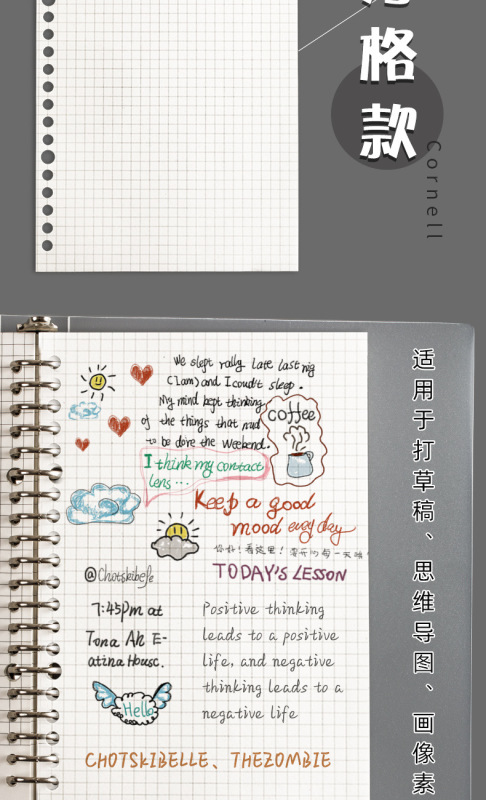 格款
Cornell
适用于打草稿、思维导图、画像素
We slept rally late last nig
(2am) and I coudt sleep.
My mind kept thinking
of the things that nud
to be done the weekend.
coffee
I think my contact
lens...
Keep a good
mood every day
你好!看这里!
TODAY'S LESSON
@Chotskibelle
7:45pm at
Tona An E-
atina House.
Hello
Positive thinking
leads to a positive
life, and negative
thinking leads to a
negative life
CHOTSKIBELLE、THEZOMBIE